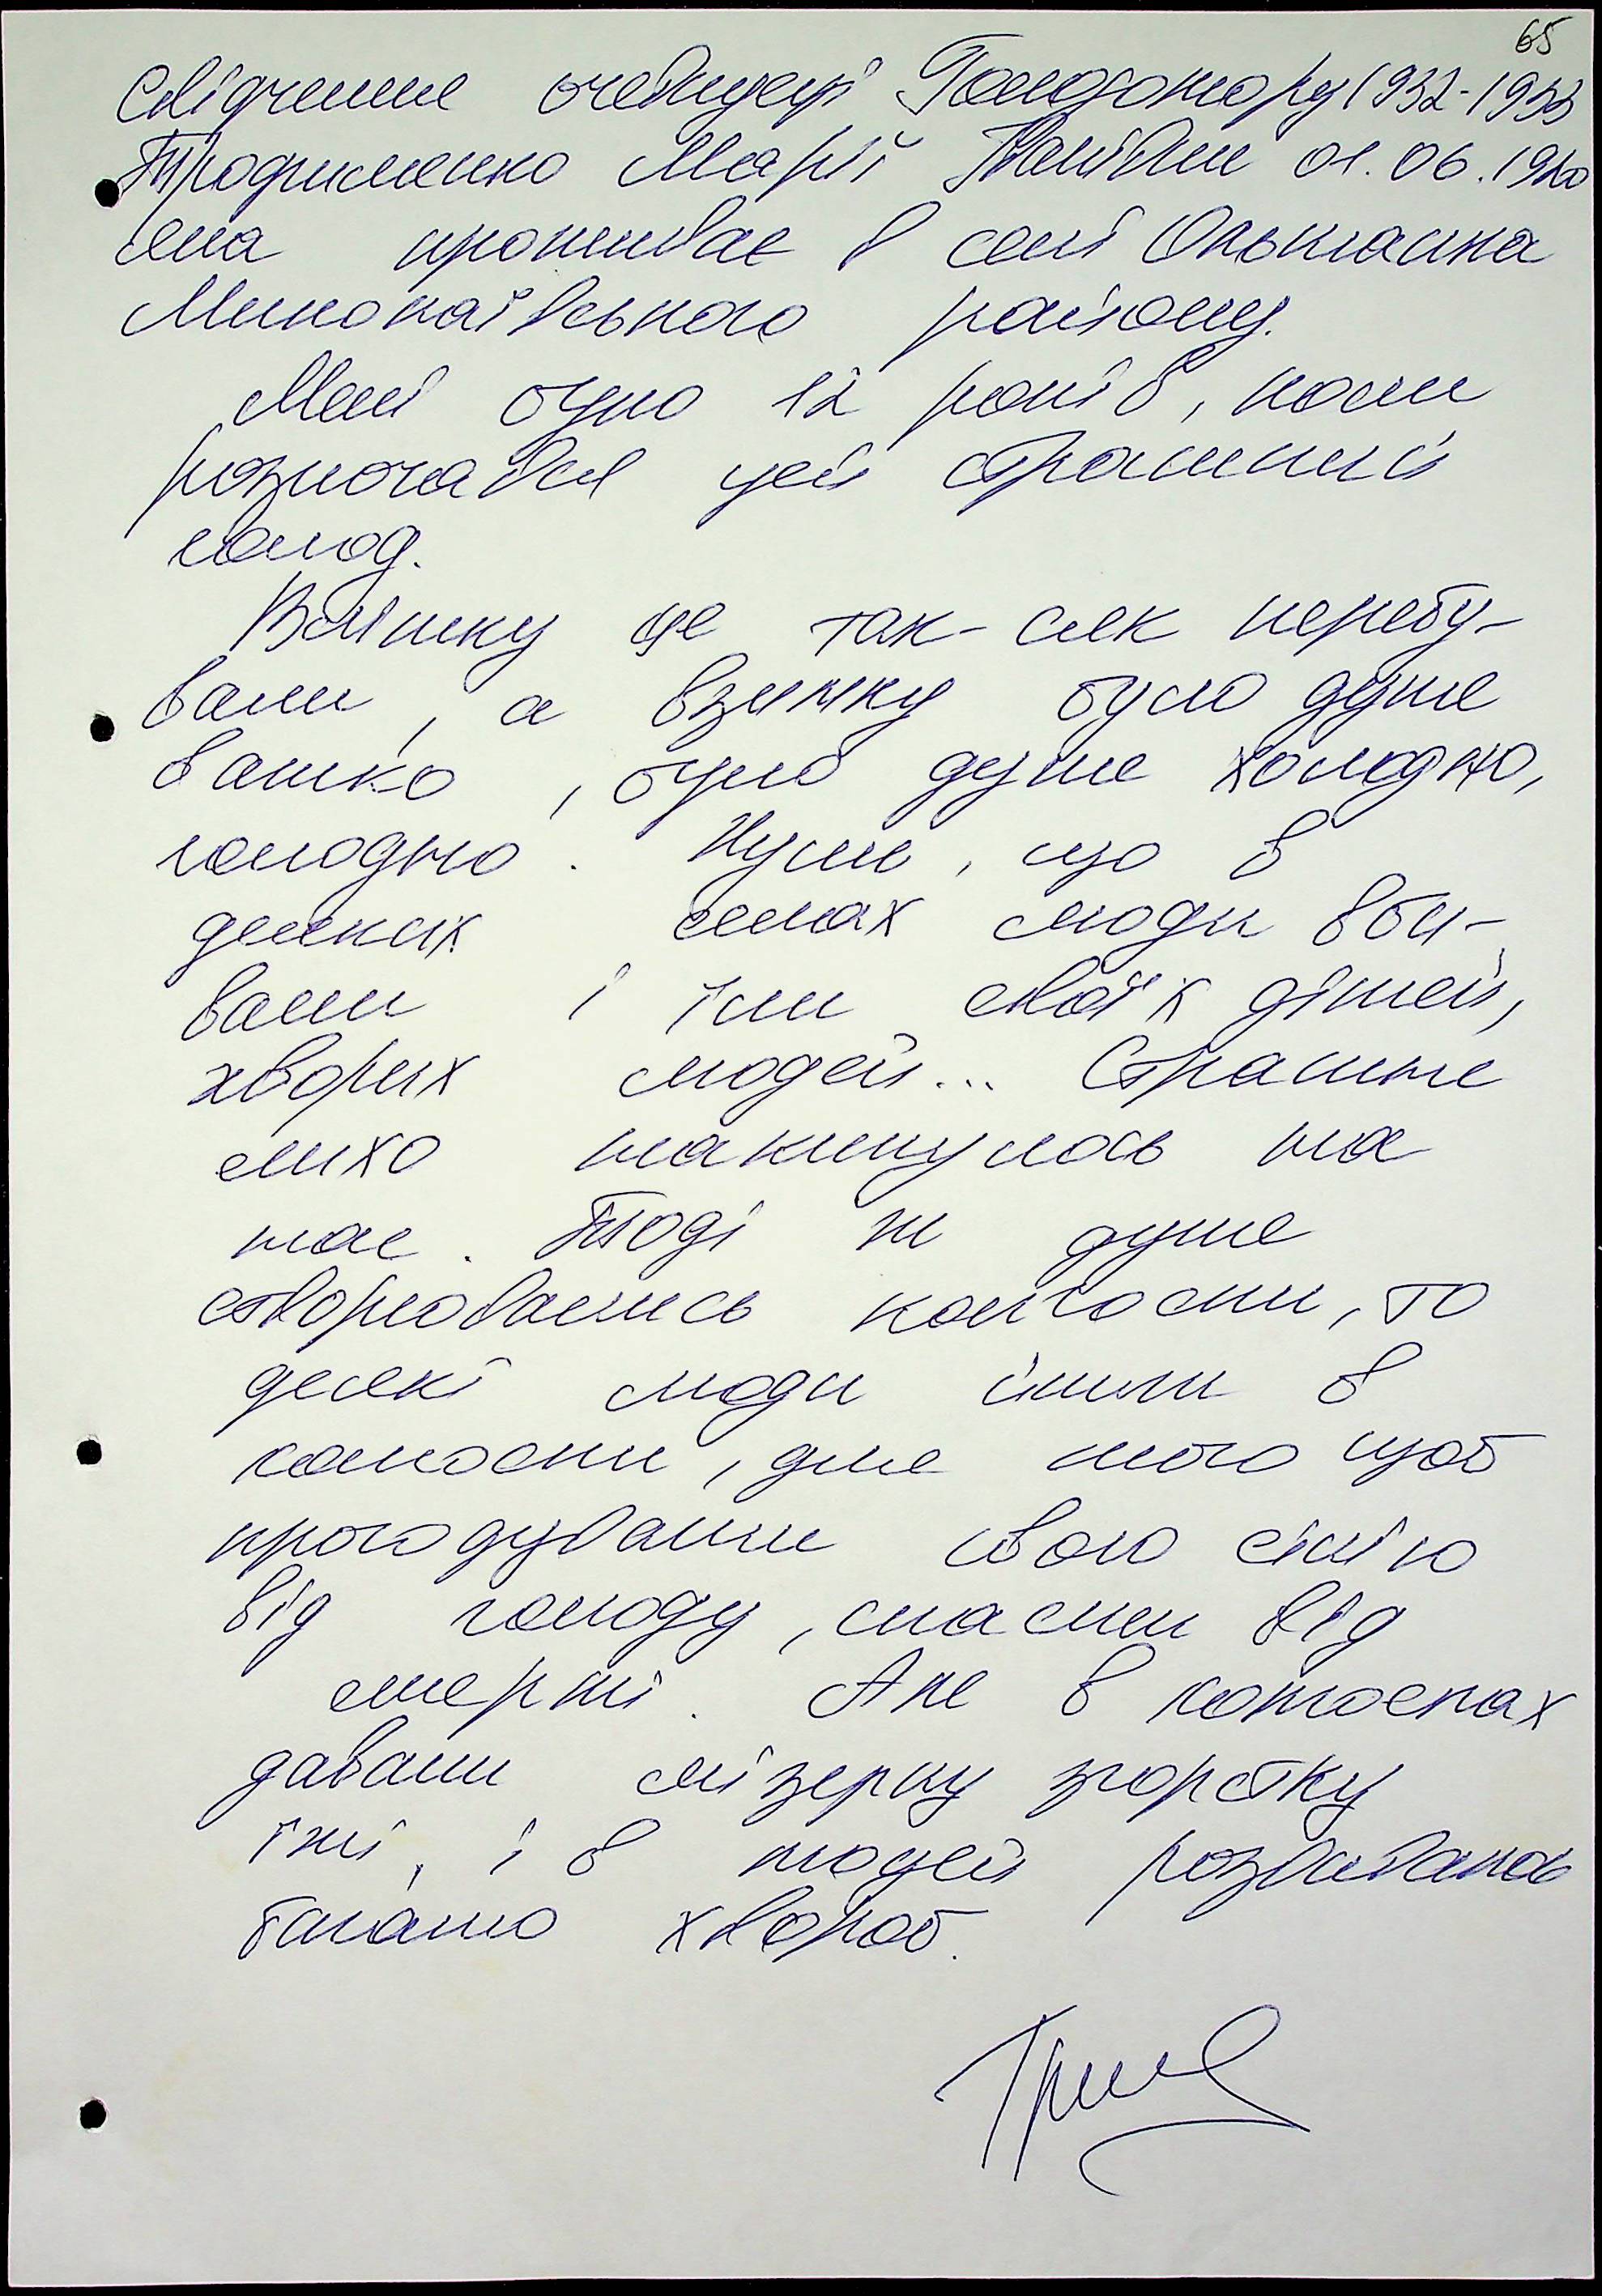 65
Свідчення очевидця Голодомору 1932-1933
Трофименко Марії Іванівни 01.06.1920
яка проживає в селі Ольшанка
Миколаївського району.
Мені було 12 років, коли
розпочався цей страшний
голод.
Влітку ще так-сяк перебу-
вали, а взимку було дуже
важко, було дуже холодно,
голодно. Чули, що в
деяких селах люди вби-
вали і їли своїх дітей,
хворих людей... Страшне
лихо накинулось на
нас. Тоді ж дуже
створювались колгоспи, то
деякі люди йшли в
колгоспи, для того щоб
прогодувати свою сімію
від голоду, спасти від
смерті. Але в колгоспах
давали мізерну горстку
їжі, і в людей розвивалось
багато хвороб.